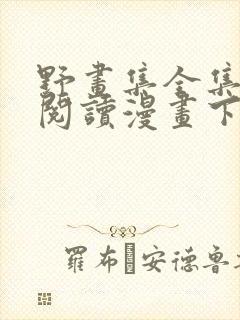 野畫集全集
閱讀漫畫下
羅布安德魯